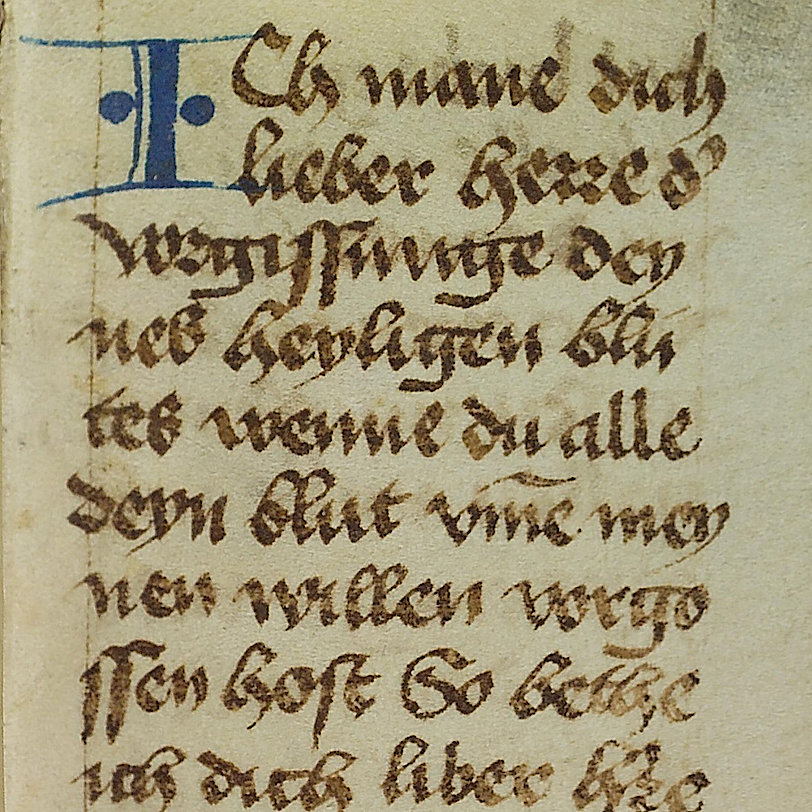 ICh mane dich
lieber herre d'
vorgissunge dey
nes heyligen blu
tes wenne du alle
deyn blut vm̄e mey
nen willen vorgo
ssen host So bethe
ich dich liber h're